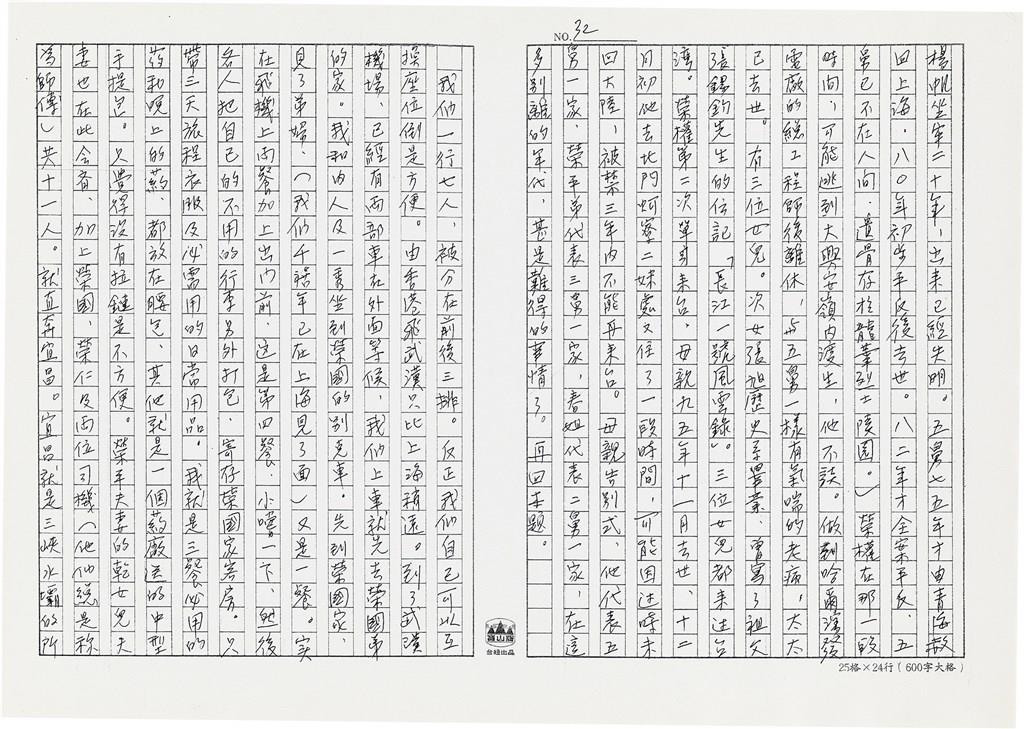 NO. 32
楊帆坐牢二十年,出來已經失明。五舅七五年才由青海救
回上海,八〇年初步平反後去世。八二年才全案平反,五
舅已不在人間,遺骨存於龍華烈士陵園。)榮權在那一段
時間,可能逃到大興安嶺內渡生,他不談。做到哈爾濱發
電廠的總工程師後離休,與五舅一樣有氣喘的老病,太太
已去世。有三位女兒。次女張祖歷史系畢業,曾寫了祖父
張錫鈞先生的傳記「長江一號風雲錄」。三位女兒都來過台
灣。榮權第二次單身來台,母親九五年十一月去世,十二
月初他去北門蚵寮二妹處又住了一段時間,可能因过時未
回大陸,被禁三年內不能再來台。母親告別式,他代表五
舅一家,榮平弟代表三舅一家,春姐代表二舅一家,在這
多別離的年代,甚是難得的事情了。再回本題。
我們一行七人,被分在前後三排。反正我們自己可以互
換座位倒是方便。由香港飛武漢只比上海稍遠。到了武漢
機場,已經有兩部車在外面等候,我們上車就先去榮國弟
的家。我和內人及一秀坐到榮國的別克車。先到榮國家,
見了弟婦,(我們千禧年已在上海見了面)又是一餐。實
在飛機上兩餐加上出門前,這是第四餐,小嚐一下,然後
各人把自己的不用的行李另外打包,寄存榮國家客房。只
帶三天旅程衣服及必需用的日常用品。我就是三餐必用的
药和晚上的药,都放在腰包,其他就是一個药廠送的中型
手提包。只覺得沒有拉鏈是不方便。榮平夫妻的乾女兒夫
妻也在此會齊,加上榮國,榮仁及兩位司機(他們總是称
為師傅)共十一人。就直奔宜昌。宜昌就是三峽水壩的所
台娃出品
25格×24行(600字大格)